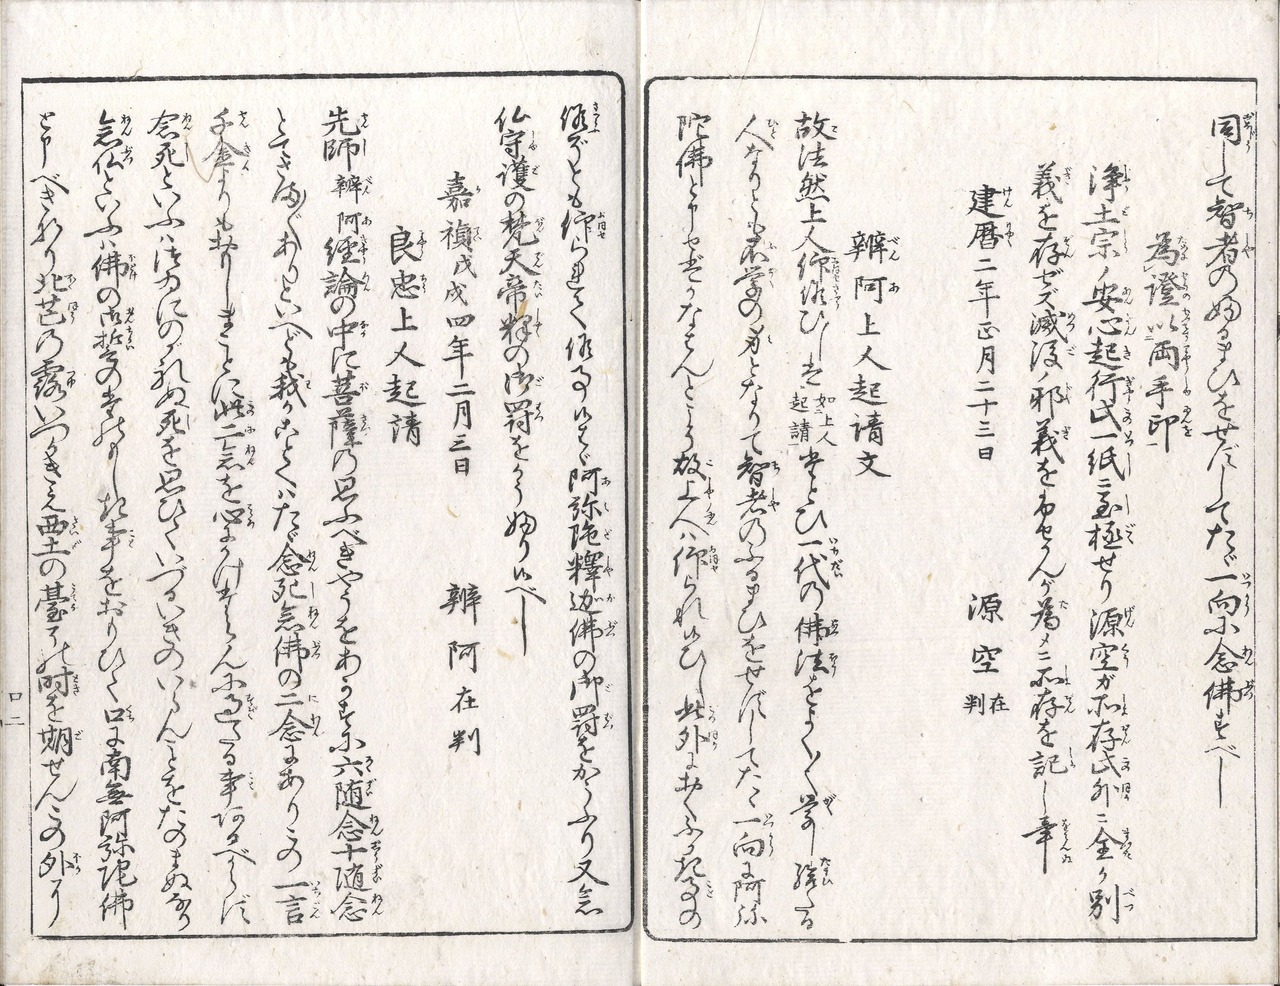 同して智者のふるまひをせずしてたゞ一向に念佛すべし
為證以両手印
浄土宗ノ安心起行此一紙ニ至極せり源空ガ所存此外ニ全ク別
義を存ゼズ滅後ノ邪義をふせカンが為メニ所存を記し畢
建暦二年正月二十三日 源空在判
辨阿上人起請文
故法然上人仰候ひしは如上人起請たとひ一代の佛法をよくよく学し給たる
人なりとも不学の身となりて智者のふるまひをせずしてたゝ一向に阿弥
陀佛と申せばかなはんとこそ故上人は仰られ候ひし此外におくふかき事の
候ぞとも仰られて候事候はゞ阿弥陀釋迦佛の御罸をかふり又念
仏守護の梵天帝釋の御罸をかうふり候べし
嘉禎戊戌四年二月三日 辨阿在判
良忠上人起請
先師辨阿経論の中に菩薩の思ふべきやうをわかつに六随念十随念
とてさまゞあり といへども我がこゝろは たゞ念死念佛の二念にありこの一言
千金よりもおもしまことに此二念を心にかけ 過たる事あるべからず
念死といふはつゐにのがれぬ死を思ひて いづるいきのいらんことをたのまぬなり
念仏といふは佛の御誓のたのもしき事をおもひて口に南無阿弥陀佛
と申べきなり北芒の露いつかきえ西土の臺 時を期せんこの外より
口二